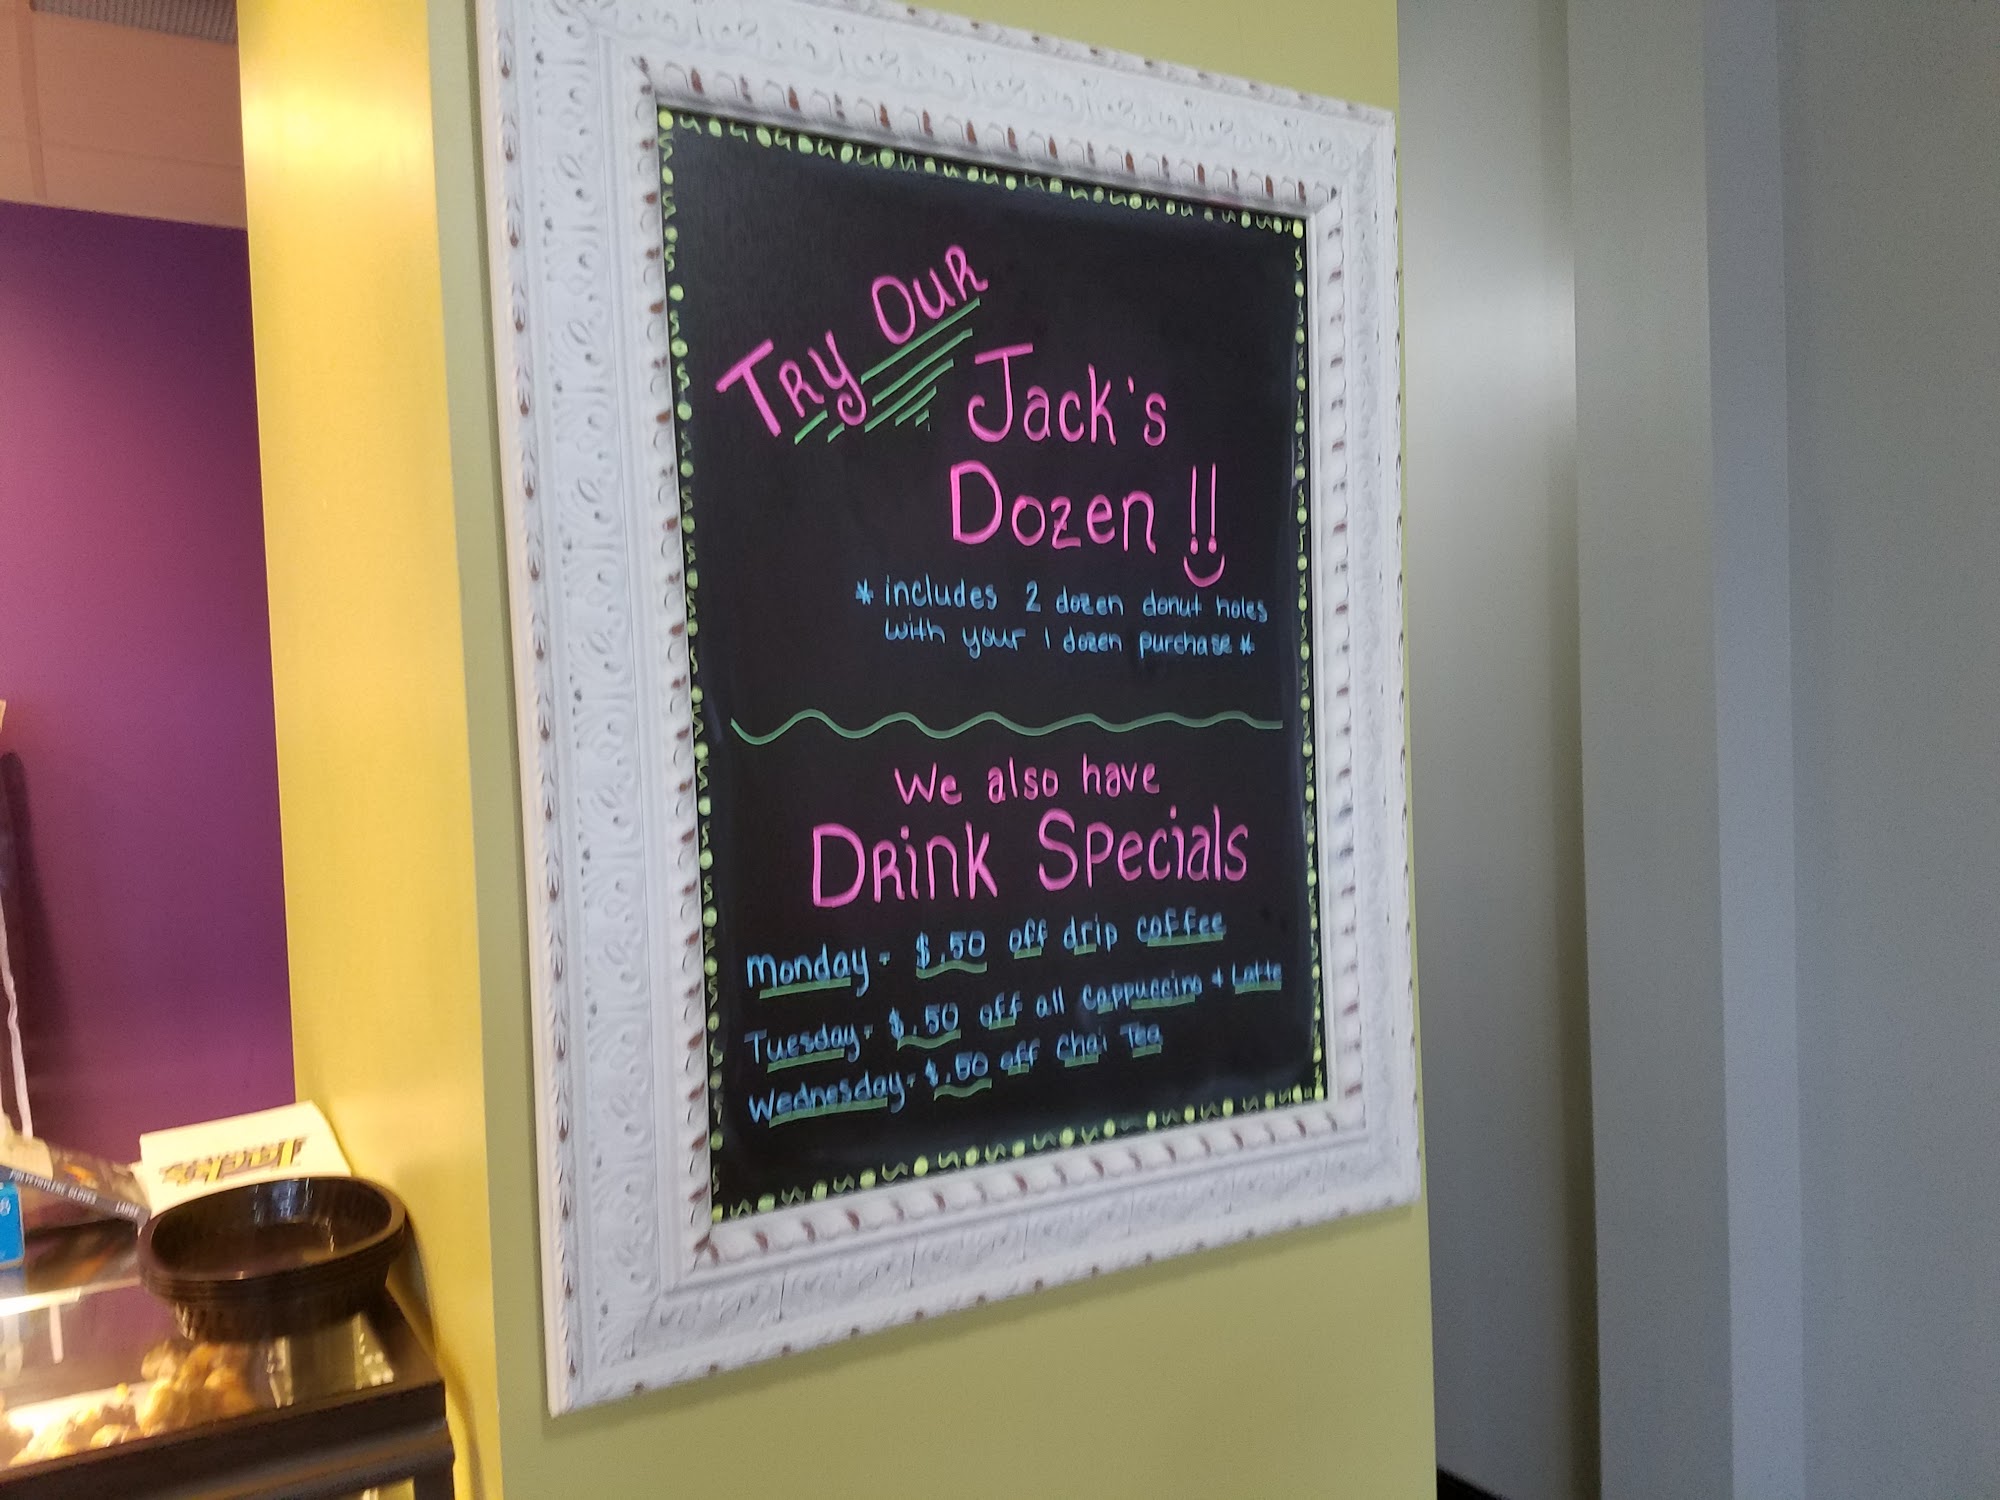 Try Our
Jack's
Dozen !!
* includes 2 dozen donut holes
with your 1 dozen purchase *
We also have
Drink Specials
Monday - $.50 off drip coffee
Tuesday - $.50 off all cappuccino + Latte
Wednesday - $.50 off chai Tea
Jack's
POLYETHYLENE GLOVES
LARGE